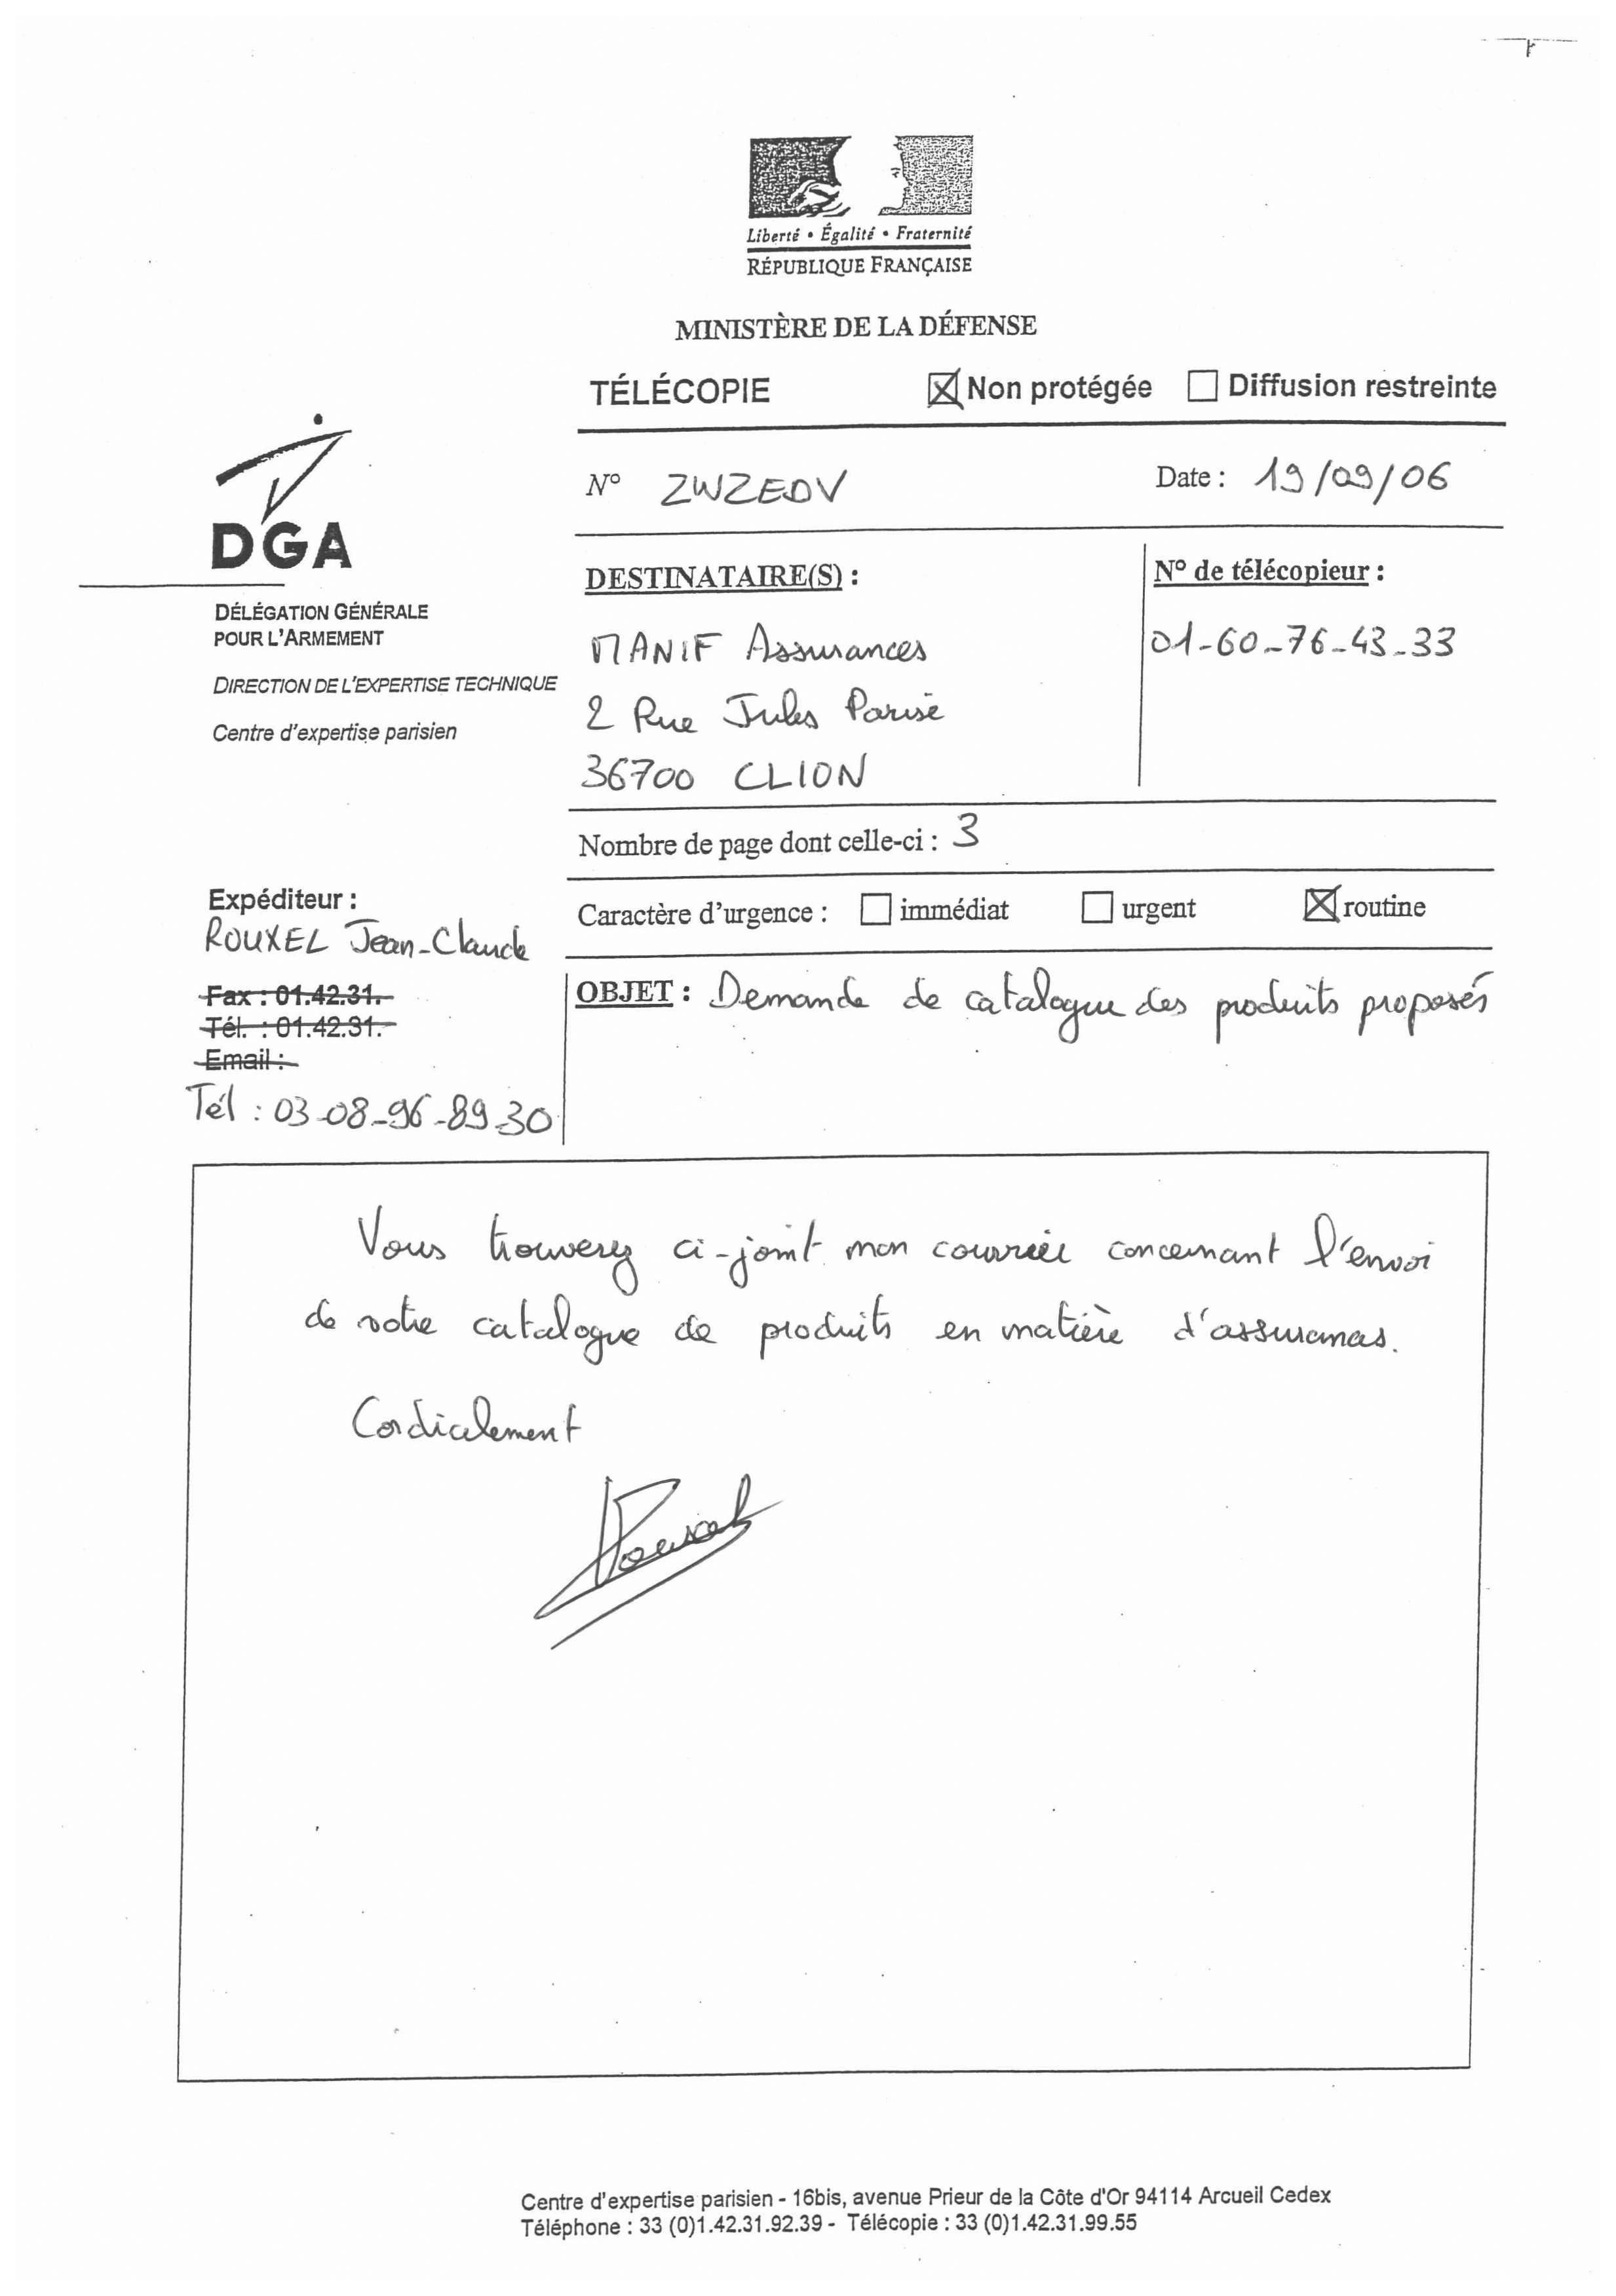 Liberté • Égalité • Fraternité
RÉPUBLIQUE FRANÇAISE
MINISTÈRE DE LA DÉFENSE
TÉLÉCOPIE Non protégée Diffusion restreinte
N° ZWZEDV Date : 19/09/06
DGA
DÉLÉGATION GÉNÉRALE
POUR L'ARMEMENT
DIRECTION DE L'EXPERTISE TECHNIQUE
Centre d'expertise parisien
DESTINATAIRE(S) :
MANIF Assurances
2 Rue Jules Parise
36700 CLION
N° de télécopieur :
01-60-76-43-33
Nombre de page dont celle-ci : 3
Expéditeur :
ROUXEL Jean-Claude
Fax : 01.42.31.
Tél. : 01.42.31.
Email :
Tél : 03-08-96-89-30
Caractère d'urgence : immédiat urgent routine
OBJET : Demande de catalogue des produits proposés
Vous trouverez ci-joint mon courrier concernant l'envoi
de votre catalogue de produits en matière d'assurances.
Cordialement
Rouxel
Centre d'expertise parisien - 16bis, avenue Prieur de la Côte d'Or 94114 Arcueil Cedex
Téléphone : 33 (0)1.42.31.92.39 - Télécopie : 33 (0)1.42.31.99.55